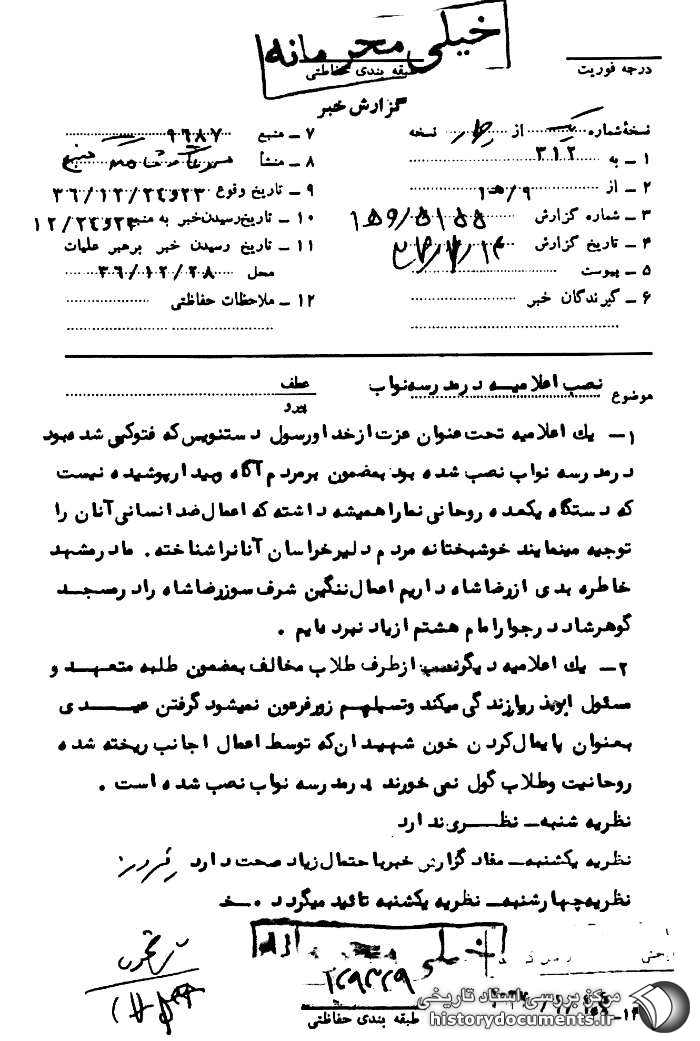 خیلی محرمانه
طبقه بندی حفاظتی
درجه فوریت
گزارش خبر
نسخهٔ شماره یک از نسخه
۱ ـ به ۳۱۲
۲ ـ از ۹/ه۱
۳ ـ شماره گزارش
۴ ـ تاریخ گزارش
۵ ـ پیوست
۶ ـ گیرندگان خبر
۷ ـ منبع ۹۶۸۷
۸ ـ منشأ منبع
۹ ـ تاریخ وقوع ۲۳و۳۶/۱۲/۲۴
۱۰ ـ تاریخ رسیدن خبر به منبع ۲۳و۱۲/۲۴
۱۱ ـ تاریخ رسیدن خبر برهبر علیات
محل ۳۶/۱۲/۲۸
۱۲ ـ ملاحظات حفاظتی
موضوع نصب اعلامیه در مدرسه نواب
عطف
پیرو
۱ـ یك اعلامیه تحت عنوان عزت از خدا و رسول دستنویس که فتوکپی شده بود
در مدرسه نواب نصب شده بود بمضمون بر مردم آگاه و بیدار پوشیده نیست
که دستگاه یکعده روحانی نما را همیشه داشته که اعمال ضد انسانی آنان را
توجیه مینمایند خوشبختانه مردم دلیر خراسان آنانرا شناخته . ما در مشهد
خاطره بدی از رضاشاه داریم اعمال ننگین شرف سوز رضاشاه را در مسجد
گوهرشاد در جوار امام هشتم از یاد نبرده ایم .
۲ـ یك اعلامیه دیگر نصب از طرف طلاب مخالف بمضمون طلبه متعهد و
مسئول ابوذر وار زندگی میکند و تسیلهم زور فرعون نمیشود گرفتن عیدی
بعنوان پایمال کردن خون شهیدان که توسط اعمال اجانب ریخته شده
روحانیت و طلاب گول نمی خورند در مدرسه نواب نصب شده است .
نظریه شنبه ـ نظری ندارد
نظریه یکشنبه ـ مفاد گزارش خبر با احتمال زیاد صحت دارد
نظریه چهارشنبه ـ نظریه یکشنبه تائید میگردد . خ
خیلی محرمانه
۱۲۹۳۲۹
طبقه بندی حفاظتی
مرکز بررسی اسناد تاریخی
historydocuments.ir